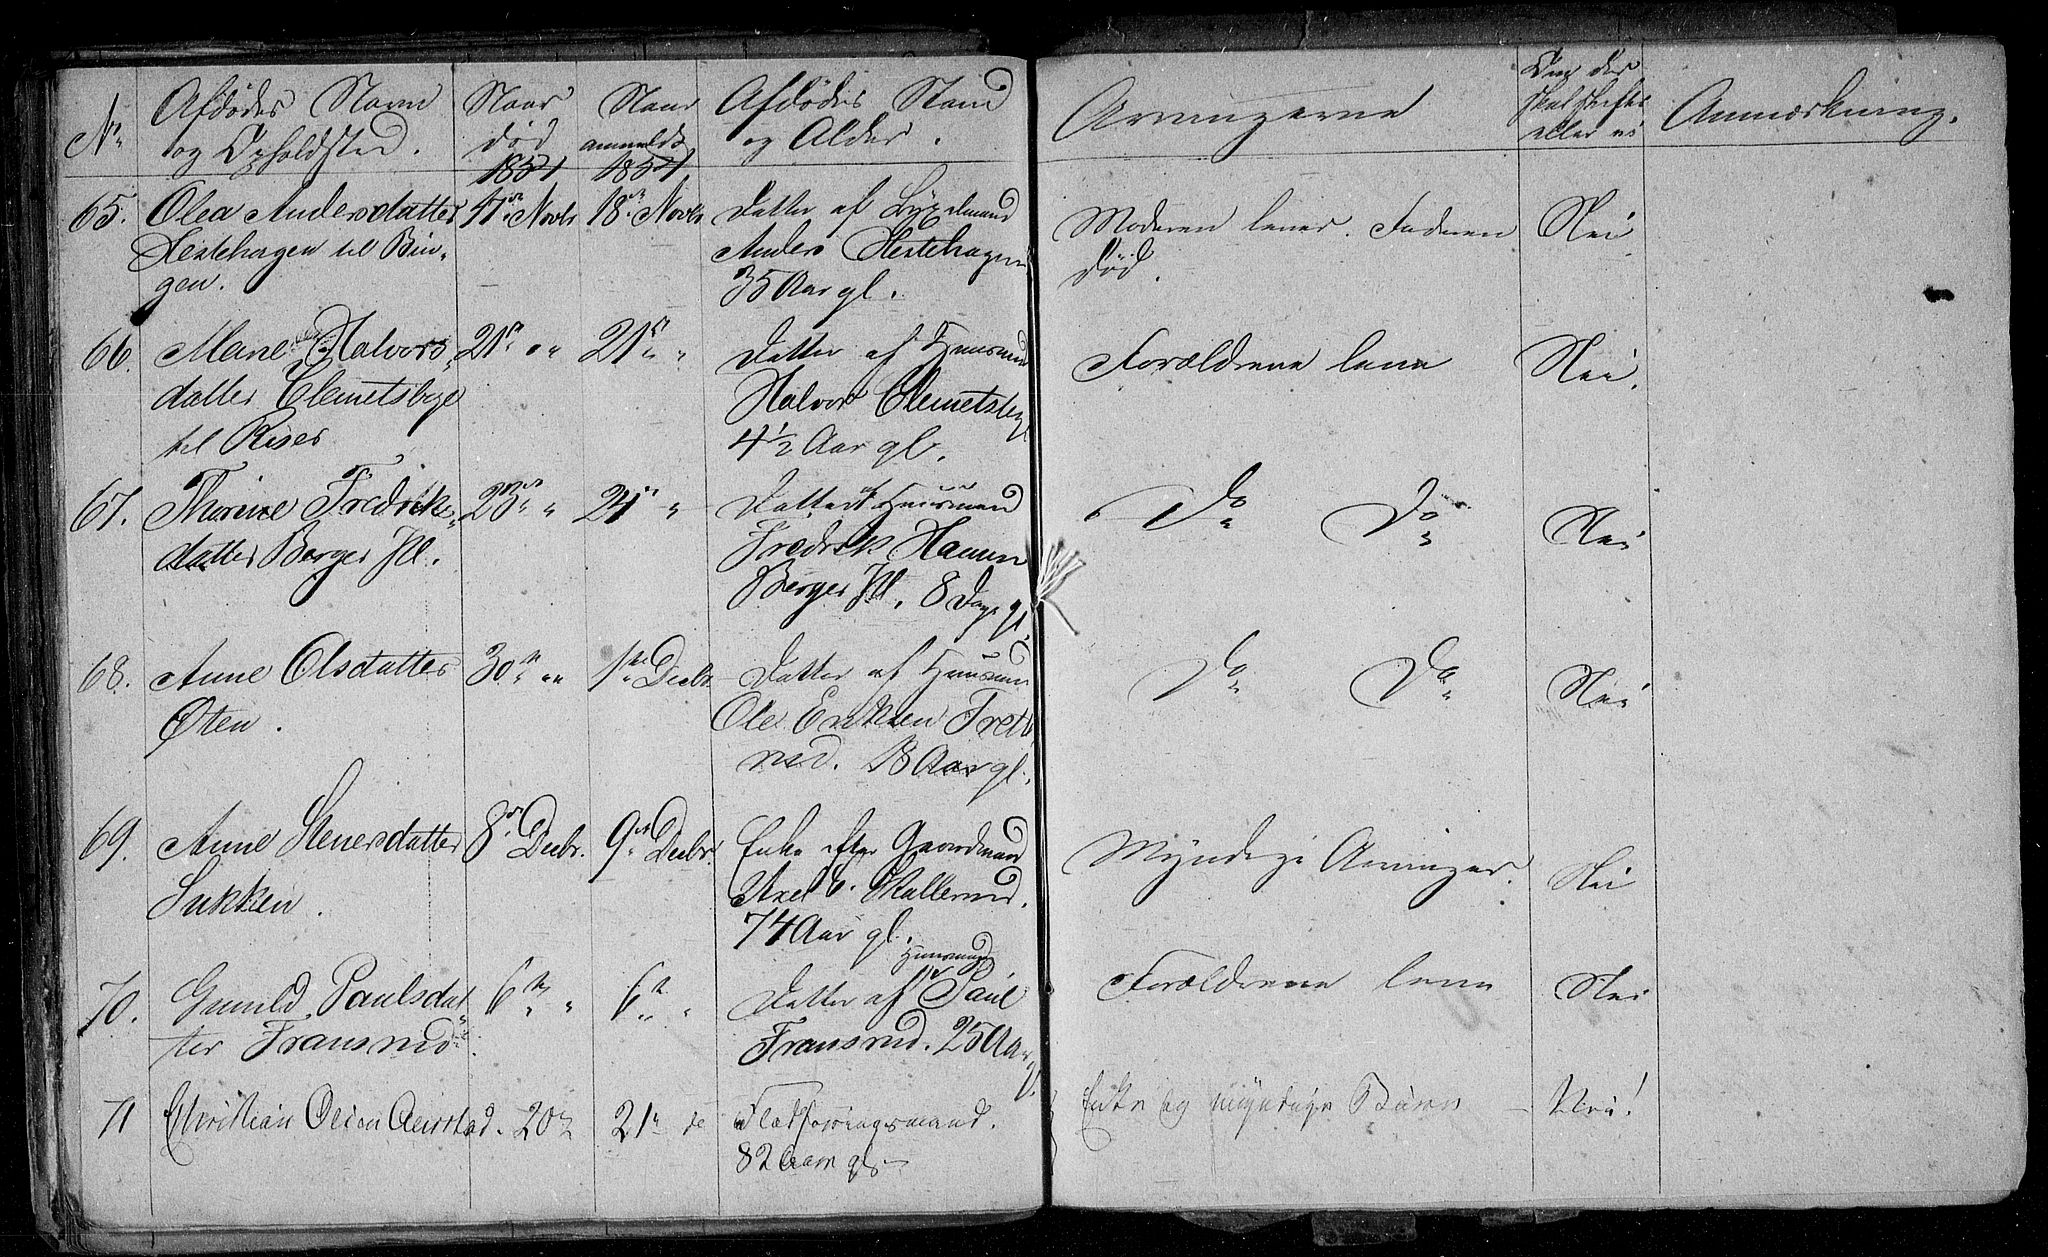 No
Afdødes Navn
og Opholdsted.
Naar
død
1854
Naar
anmeldt
1854
Afdødes Stand
og Alder.
Arvingerne
Om der
skal skiftes
eller ei
Anmærkning.
65.
Olea Andersdatter
Hestehagen til Bin-
gen.
Novbr
18de Novbr
Datter af
Anders Hestehagen
35 Aar gl.
Moderen lever. Faderen
død.
Nei
66.
Marie Halvors-
datter Clemetsbye
til Riser
21de " "
21de "
Datter af Huusmand
Halvor Clemetsbye
4½ Aar gl.
Forældrene leve
Nei.
67.
Thorine Fredriks-
datter Berger Hl.
23de " "
24de "
Datter af Huusmand
Fredrik Hansen
Berger Hl. 8 Dage gl.
Do Do
Nei
68.
Anne Olsdatter
Øten.
30te " "
1ste Decbr
Datter af Huusmand
Ole Eriksen Frett-
ned. 13 Aar gl.
Do Do
Nei
69.
Anne Stenersdatter
Sukken.
8de Decbr.
9de Decbr.
Enke efter Gaardmand
Axel Skallerud.
74 Aar gl.
Myndige Arvinger.
Nei
70.
Gunild Paulsdat-
ter Fransrud.
6te "
6te "
Datter af Huusmand Paul
Fransrud. 25 Aar
gl.
Forældrene leve
Nei
71
Christian Olsen Aurstad.
20de
21de de
Flodføringsmand.
82 Aar gl.
Enke og myndige Børn
Nei!